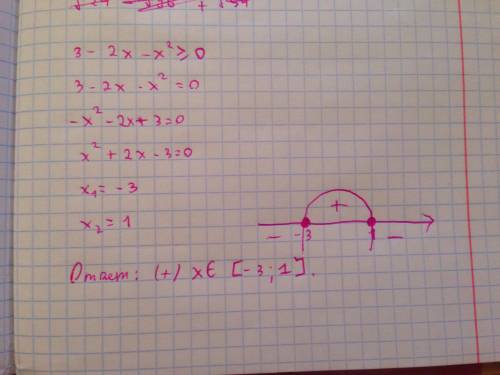 3 - 2x - x² ≥ 0
3 - 2x - x² = 0
-x² - 2x + 3 = 0
x² + 2x - 3 = 0
x₁ = -3
x₂ = 1
+
- -3 1 -
Ответ: (+) x ∈ [-3; 1].